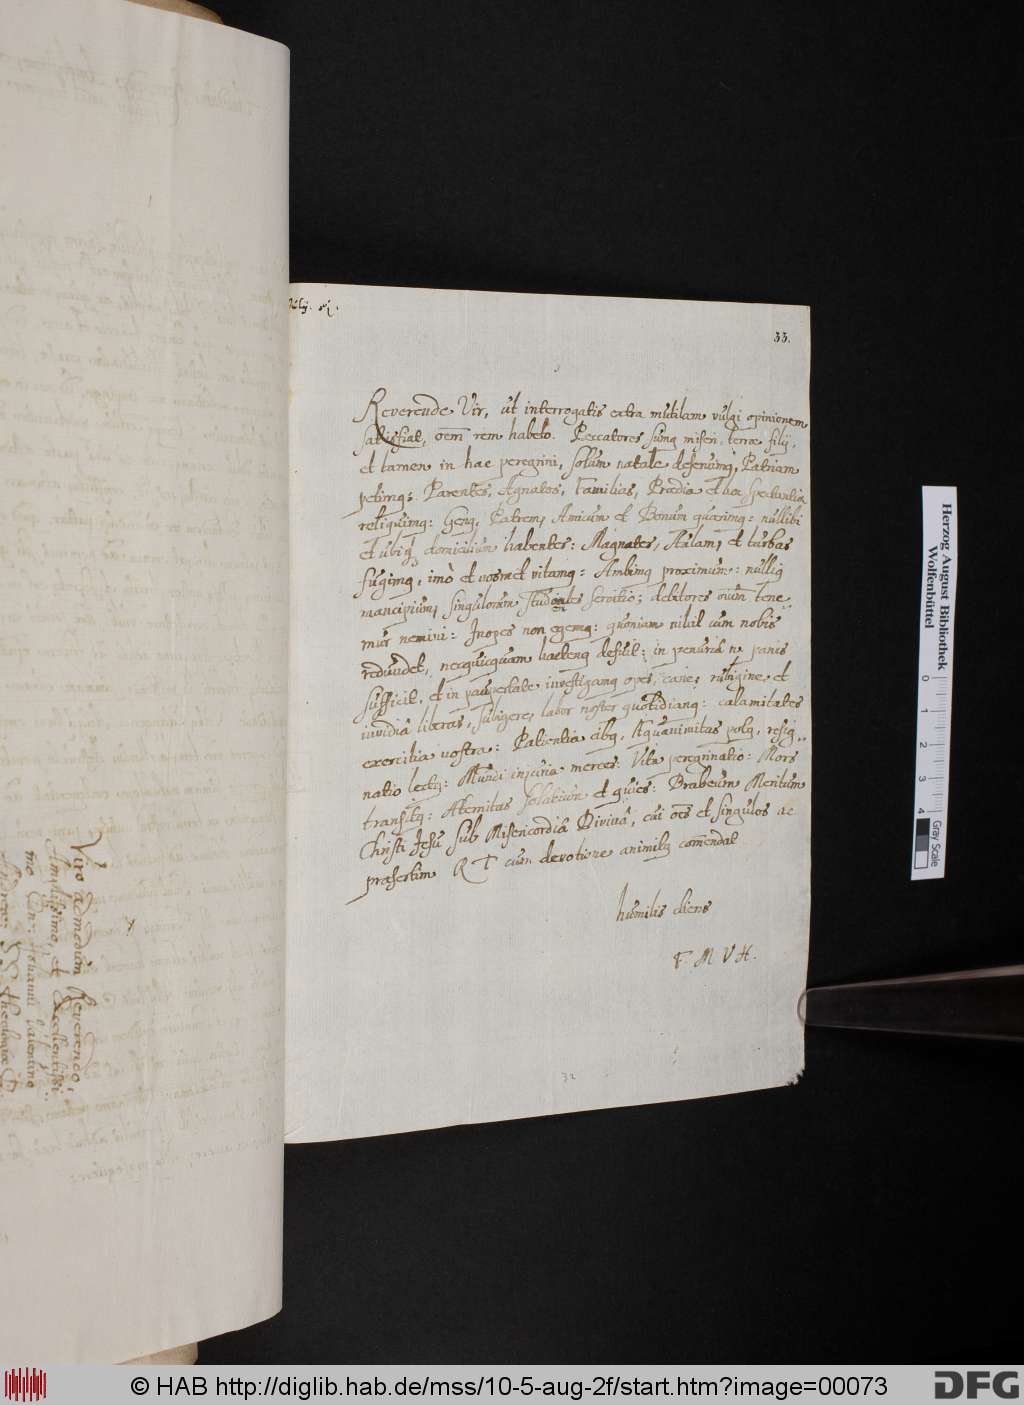 33.
Reverende Vir, ut interrogatis extra mutilam vulgi opinionem
satisfiat, oem rem habeto. Peccatores sumq miseri, terræ filij,
et tamen in hac peregrini, solum natale deserimq, Patriam
petimq: Parentes, Agnatos, Familias, Prædia et huc spectantia
reliquimq: Genq, Patrem, Amicum et Bonum quærimq: nullibi
et ubiq domicilium habentes: Magnates, Aulam, et turbas
fugimq, imò et vosmet vitamq: Ambimq proximum: nulliq
mancipium, singulorum studentes servitio; debitores oium tene
mur nemini: Inopes non egemq: quoniam nihil cum nobis
redundet, necquicquam hactenq defuit: in penuria n panis
sufficit, et in paupertate investigamq opes, carie, rubigine et
invidia liberas, subigere, labor noster quotidianq: calamitates
exercitia nostra: Patientia cibq, Æquanimitas potq, resig
natio lectq: Mundi injuria merces: Vita peregrinatio: Mors
transitq: Æternitas solatium et quies: Brabeum Meritum
Christi Jesu sub Misericordiâ Divinâ, cui oes et singulos ac
præsertim R T cum devotione animitq comendat
humilis cliens
F. M V H.
32
Viro admodum Reverendo,
Amplissimo, et Excellentissi
mo Dn: Johanni Valentino
Andreæ: SS Theologiæ D
Herzog August Bibliothek
Wolfenbüttel
0 1 2 3 4
Gray Scale
© HAB http://diglib.hab.de/mss/10-5-aug-2f/start.htm?image=00073
DFG